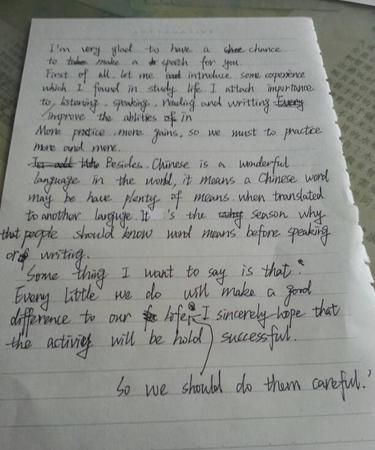 I'm very glad to have a chance
to make a speech for you.
First of all, let me introduce some experience
which I found in study life. I attach importance
to listening, speaking, reading and writting Every
improve the ablities of in
More practice, more gains, so we must to practice
more and more.
Pesides, Chinese is a wonderful
language in the world, it means a Chinese word
may be have plenty of means, when translated
to another languge. It 's the season why
that people should know word means before speaking
or writing.
Some thing I want to say is that "
Every little we do will make a good
difference to our life. I sincerely hope that
the activity will be hold successful.
So we should do them careful.'